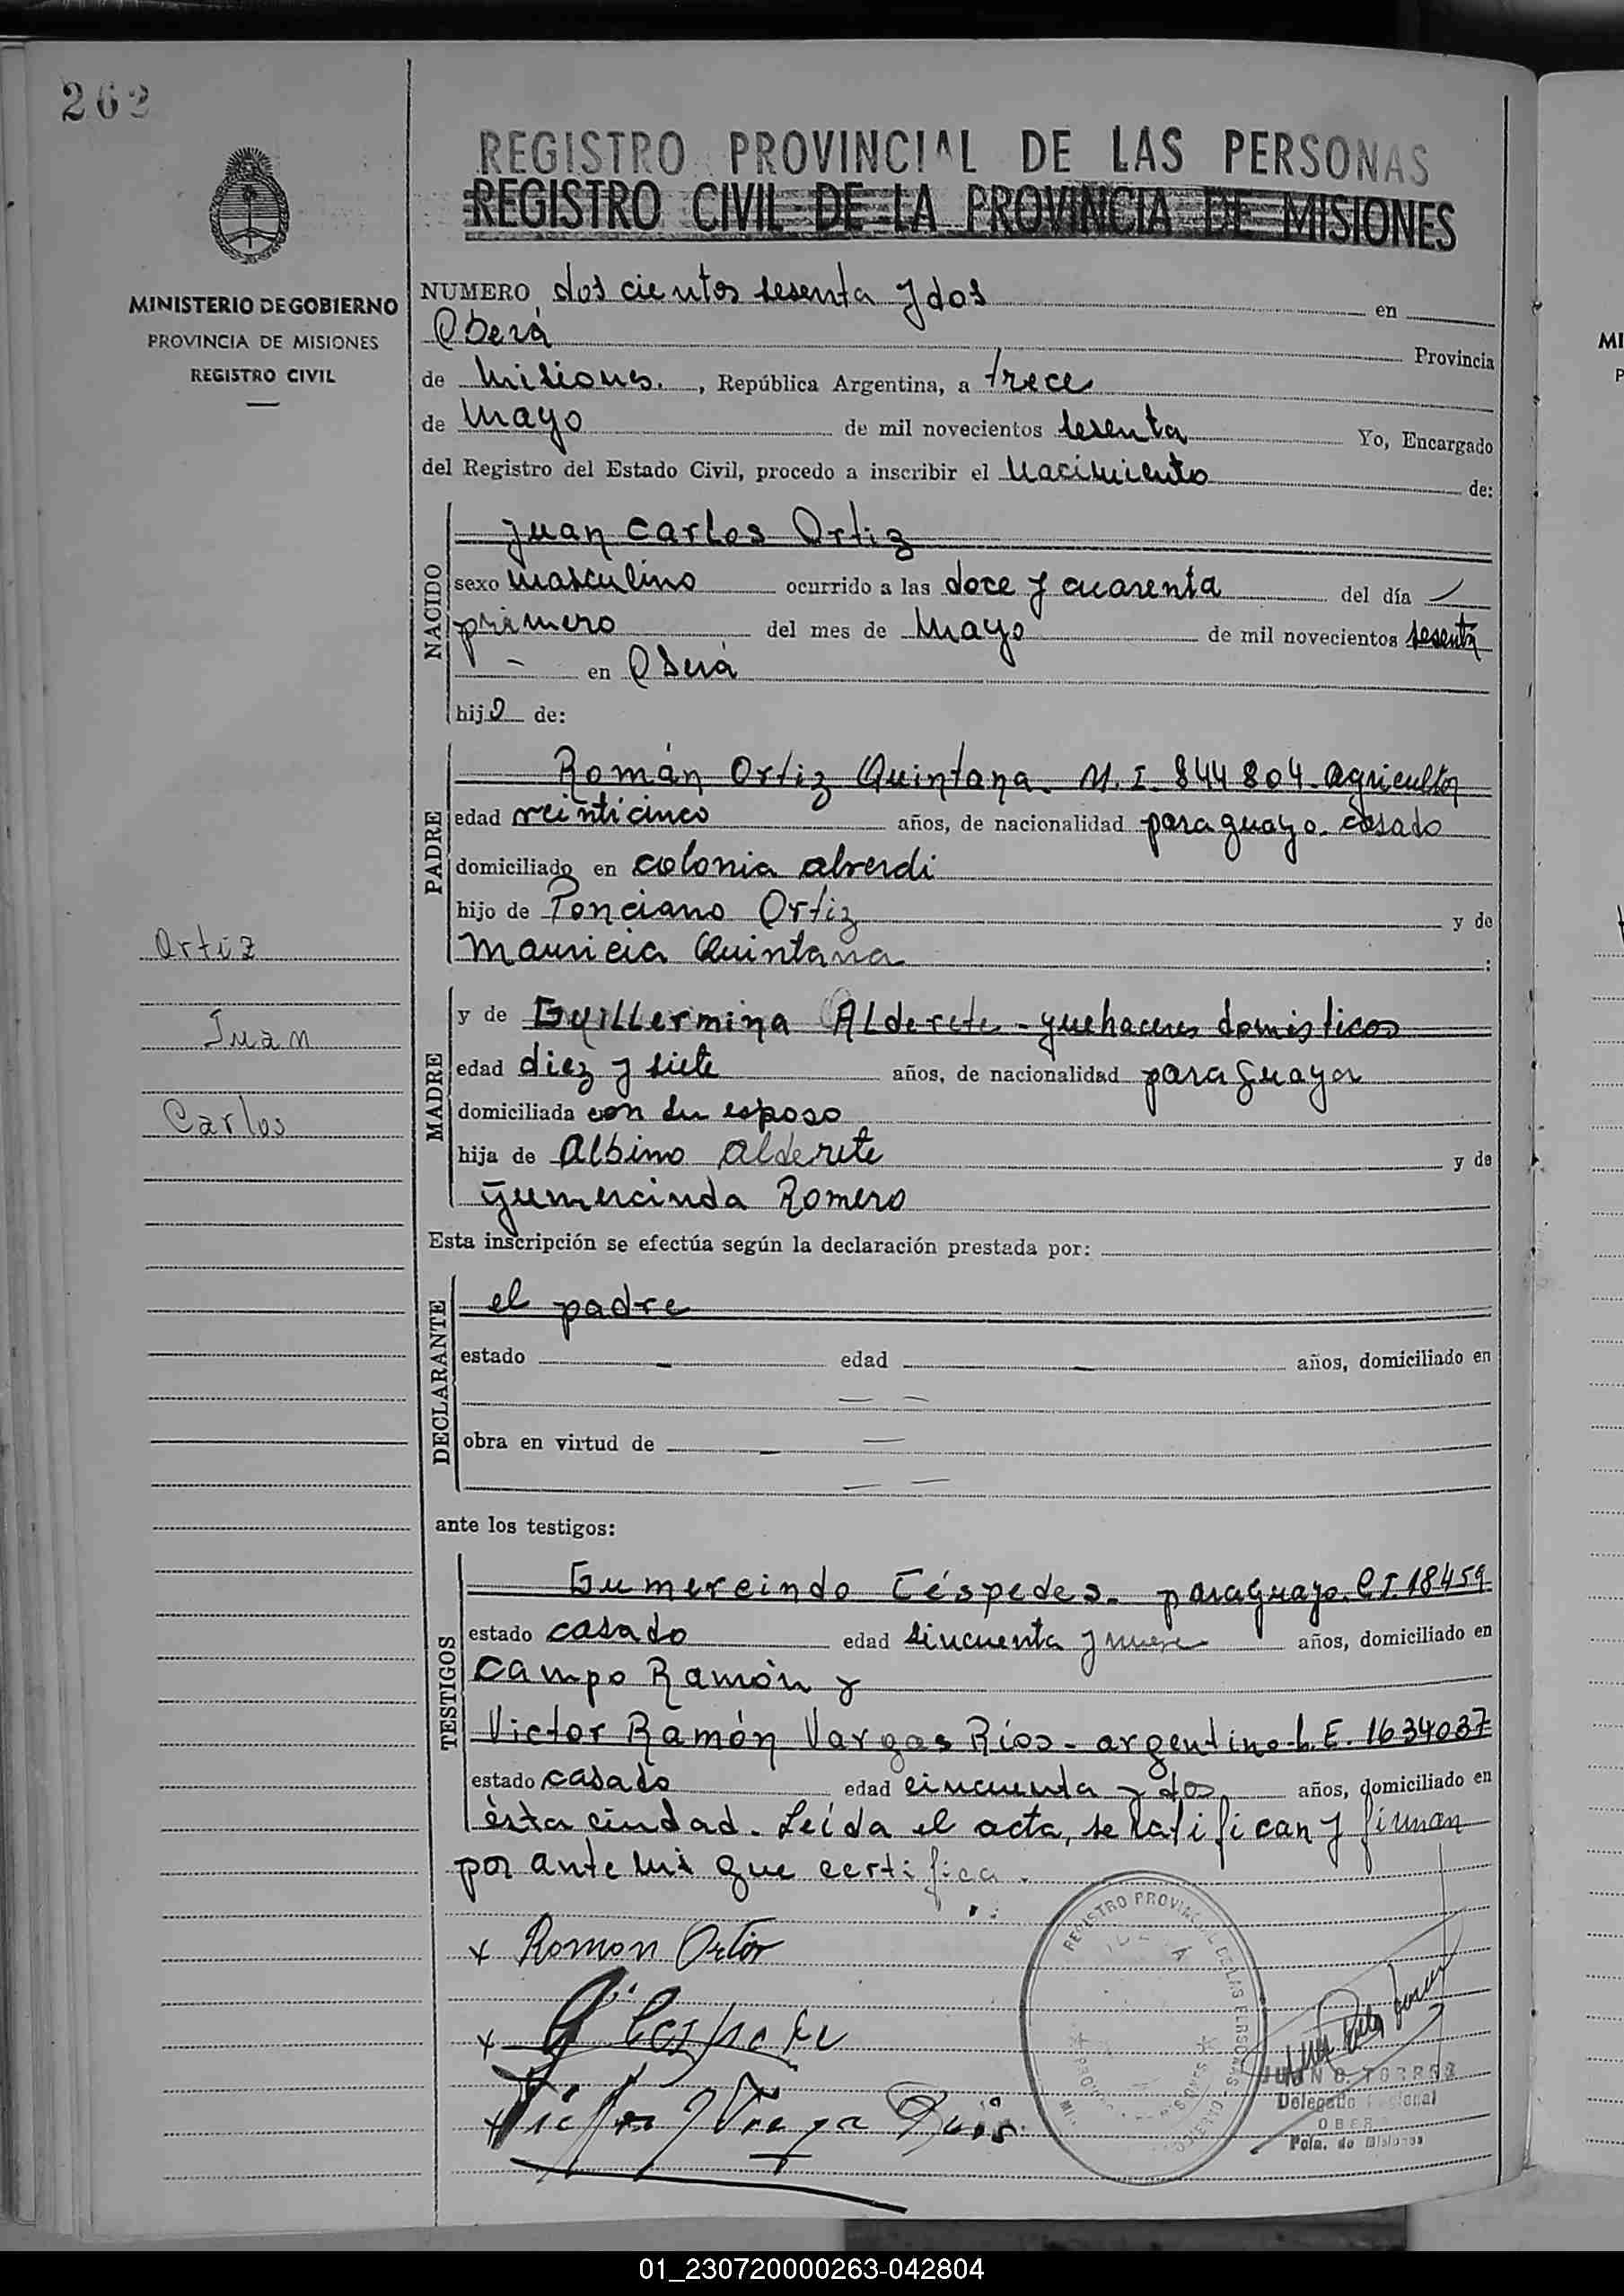 262
REGISTRO PROVINCIAL DE LAS PERSONAS
REGISTRO CIVIL DE LA PROVINCIA DE MISIONES
MINISTERIO DE GOBIERNO
PROVINCIA DE MISIONES
REGISTRO CIVIL
NUMERO doscientos sesenta y dos en
Oberá Provincia
de Misiones., República Argentina, a trece
de Mayo de mil novecientos sesenta Yo, Encargado
del Registro del Estado Civil, procedo a inscribir el Nacimiento de:
NACIDO
Juan Carlos Ortiz
sexo masculino ocurrido a las doce y cuarenta del día
primero del mes de Mayo de mil novecientos sesenta
en Oberá
hijo de:
PADRE
Román Ortiz Quintana. M.I. 844804. agricultor
edad veinticinco años, de nacionalidad paraguayo. casado
domiciliado en colonia alberdi
hijo de Ponciano Ortiz y de
Mauricia Quintana :
Ortiz
Juan
Carlos
MADRE
y de Guillermina Alderete - quehaceres domésticos
edad diez y siete años, de nacionalidad paraguaya
domiciliada con su esposo
hija de Albino Alderete y de
Gumercinda Romero
Esta inscripción se efectúa según la declaración prestada por:
DECLARANTE
el padre
estado - edad - años, domiciliado en
obra en virtud de
ante los testigos:
TESTIGOS
Gumercindo Céspedes. paraguayo. C.I. 18459
estado casado edad sincuenta y nueve años, domiciliado en
Campo Ramón y
Victor Ramón Vargas Ríos - argentino L.E. 1634037
estado casado edad cincuenta y dos años, domiciliado en
ésta ciudad. Leída el acta, se ratifican y firman
por ante mi que certifica.
x Roman Ortiz
x G Cespede
x Victor
REGISTRO PROVINCIAL DE LAS PERSONAS
TORRES
Delegado Regional
OBERÁ
Pcia. de Misiones
01_230720000263-042804